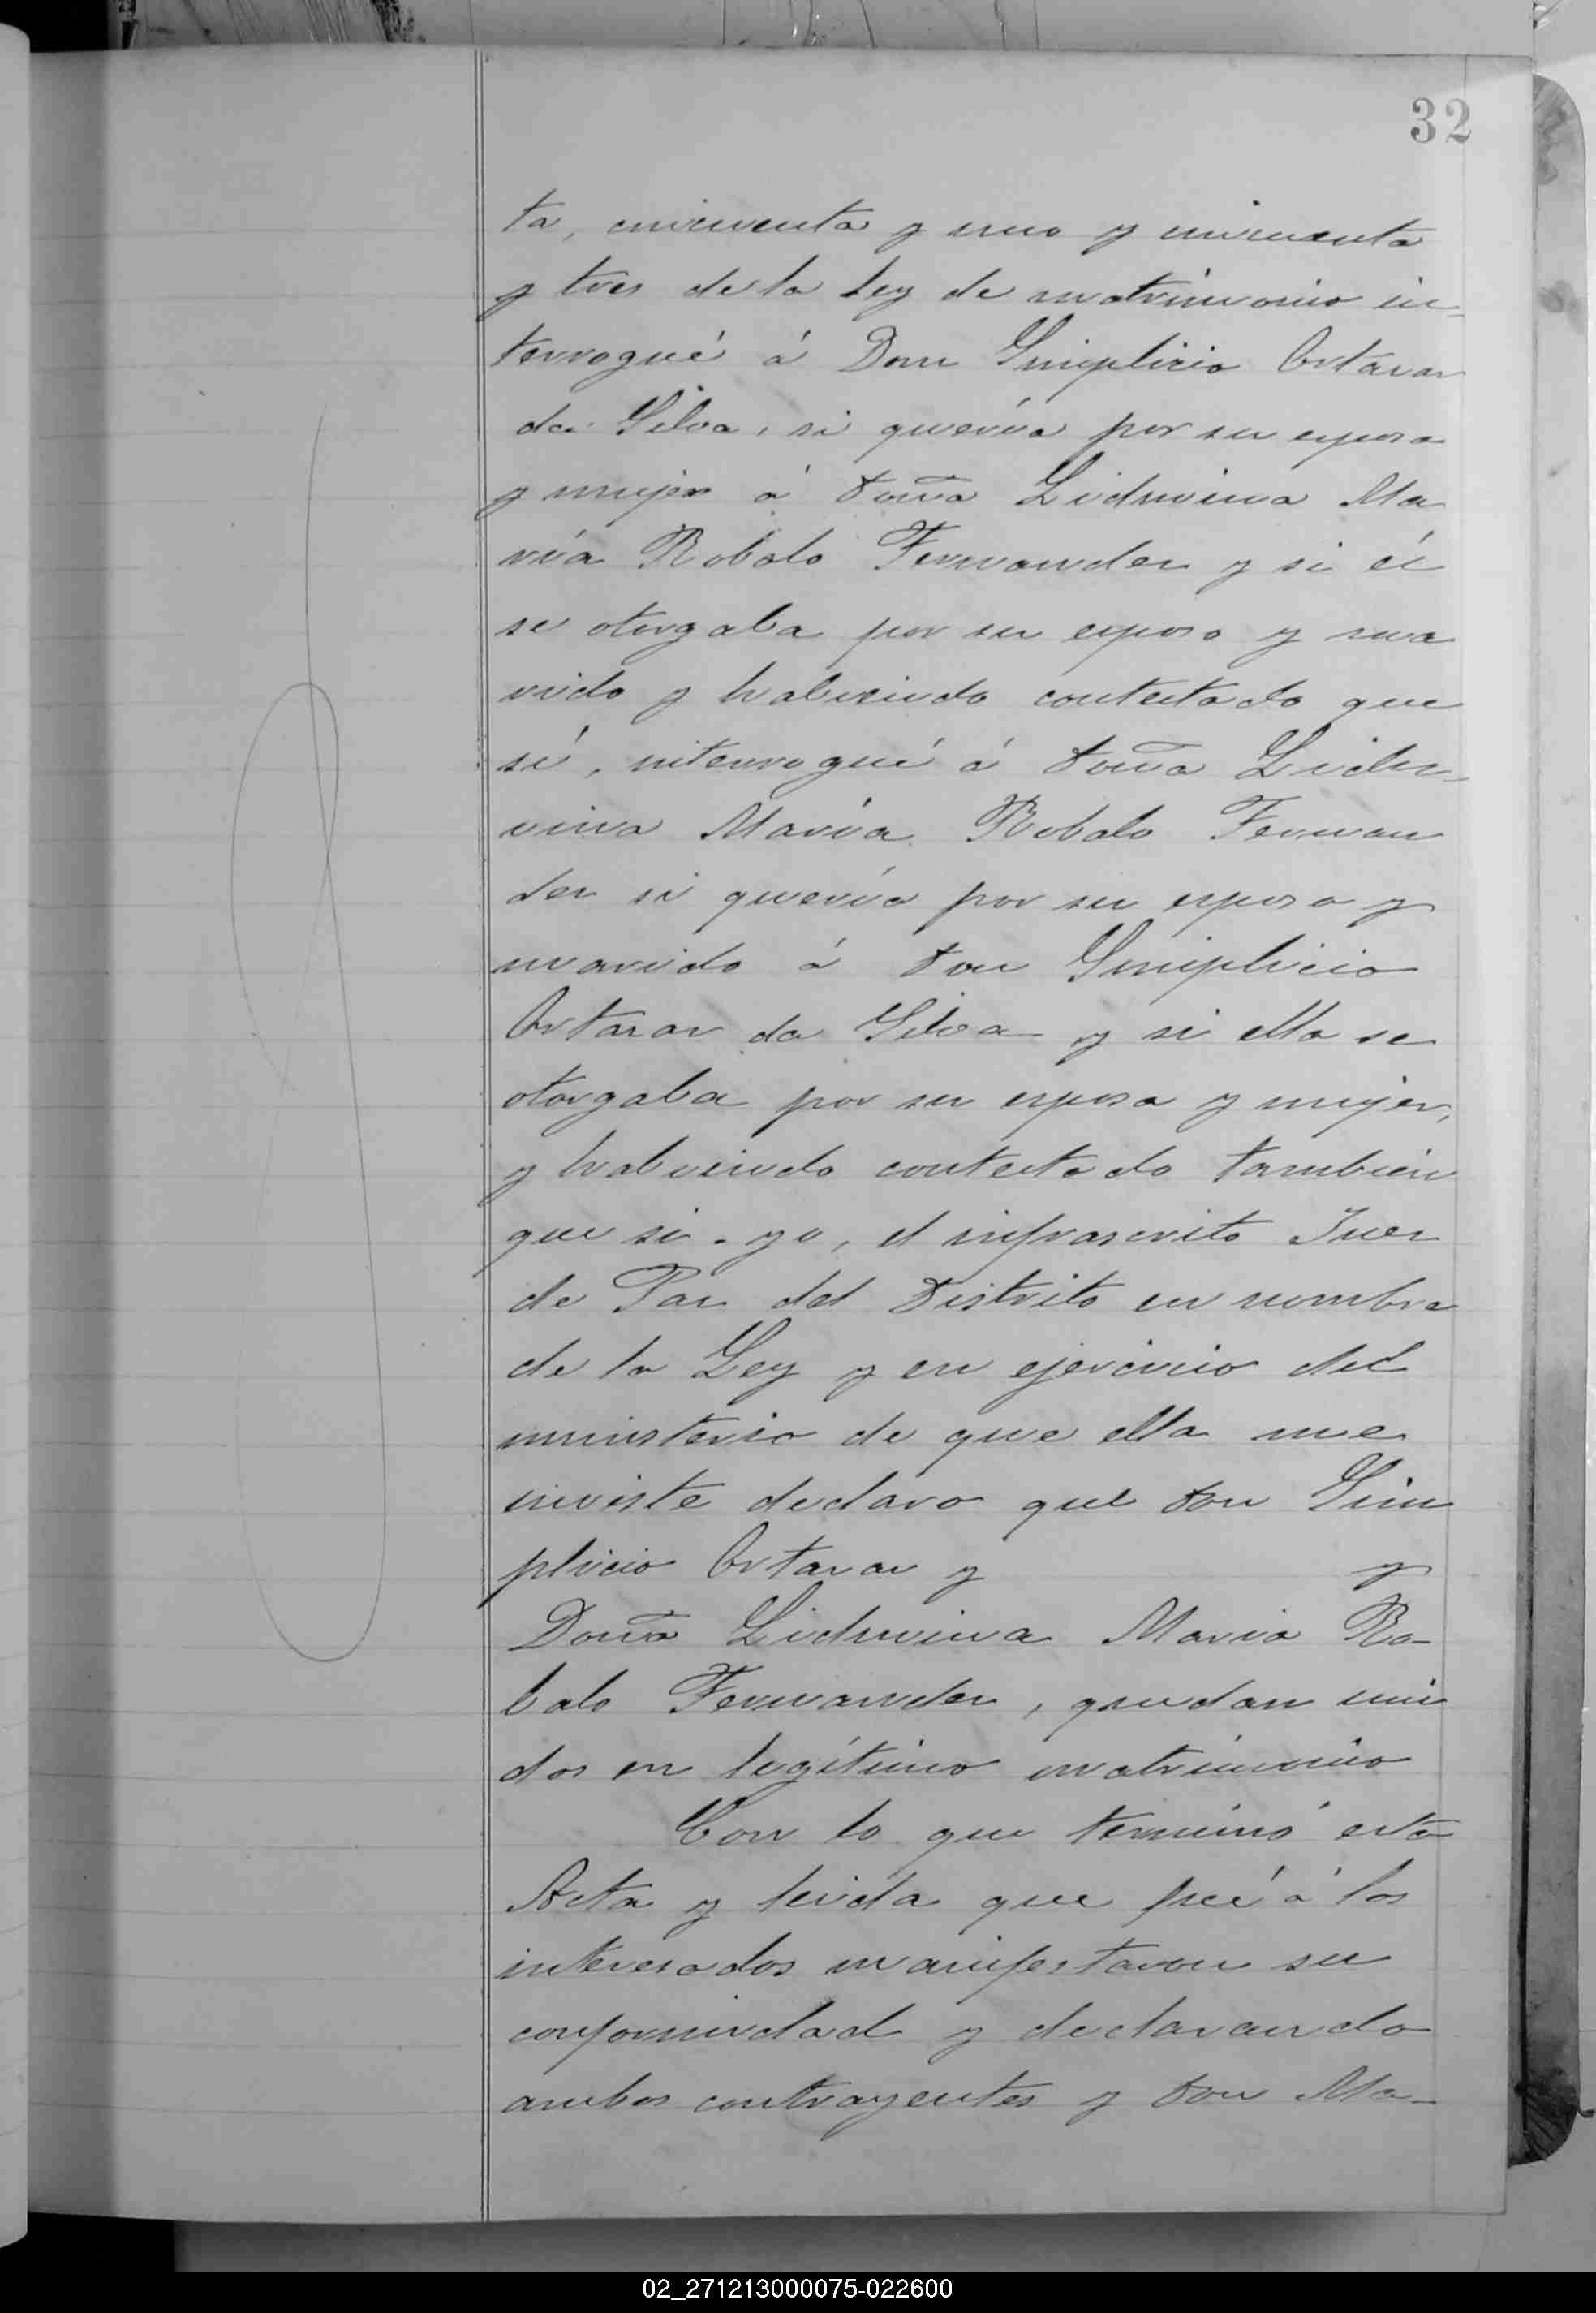 32
ta, cincuenta y uno y cincuenta
y tres de la ley de matrimonio in-
terrogué á Don Simplicio Artarar
da Silva, si quería por su esposa
y mujer á Doña Liduvina Ma
ría Robalo Fernandez y si él
se otorgaba por su esposo y ma
rido y habiendo contestado que
sí, interrogué á Doña Lidu-
vina María Robalo Fernan
dez si quería por su esposo y
marido á Don Simplicio
Artarar da Silva y si ella se
otorgaba por su esposa y mujer,
y habiendo contestado también
que si. yo, el infrascrito Juez
de Paz del Distrito en nombre
de la Ley y en ejercicio del
ministerio de que ella me
inviste declaro que Don Sim
plicio Artarar y y
Doña Liduvina Maria Ro-
balo Fernandez, quedan uni
dos en legítimo matrimonio
Con lo que terminó esta
Acta y leida que fué á los
interesados manifestaron su
conformidad y declarando
ambos contrayentes y Don Ma-
02_271213000075-022600